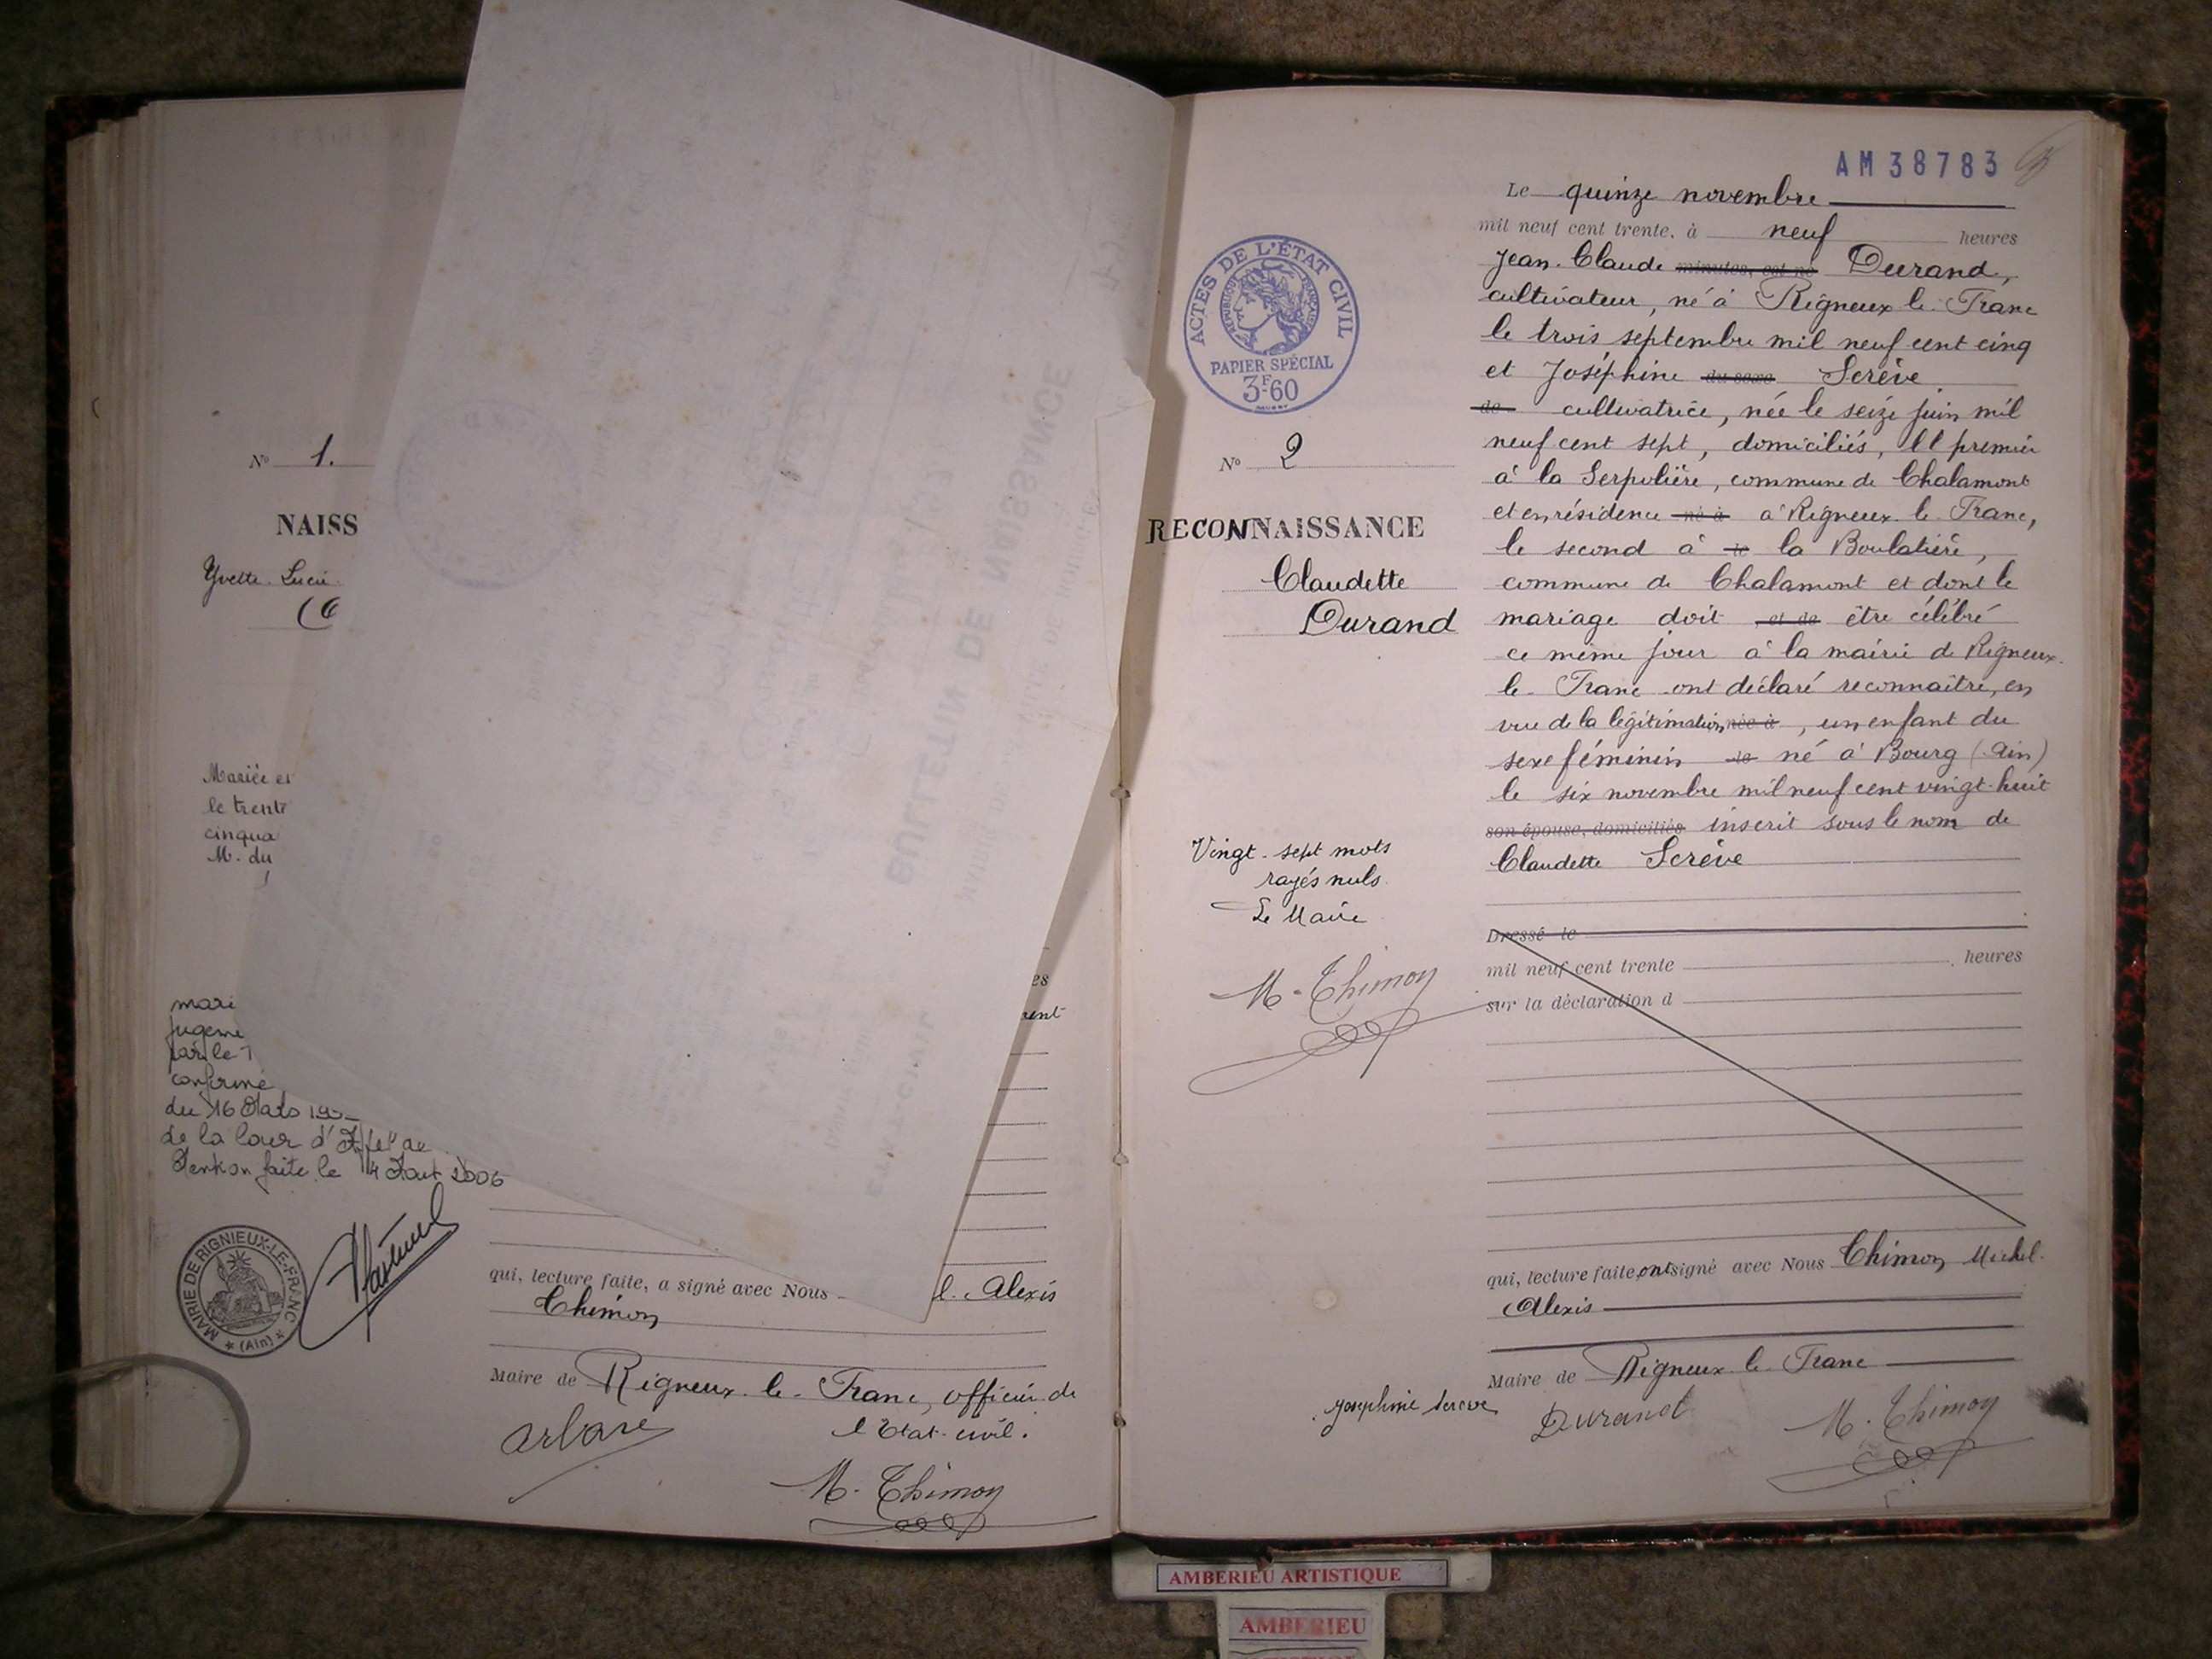 N° 1.
NAISS
Yvette Lucie
Mariée
le trente
cinqua
M. du
mari
jugeme
par le T
confirmé
du 16 Mars
de la Cour d'Appel de
Mention faite le 14 Août 2006
MAIRIE DE RIGNIEUX-LE-FRANC
* (Ain) *
BULLETIN DE NAISSANCE
qui, lecture faite, a signé avec Nous l. Alexis
Chimon
Maire de Rigneux-le-Franc, officier de
l'Etat-civil.
M. Chimon
ACTES DE L'ÉTAT CIVIL
RÉPUBLIQUE FRANÇAISE
PAPIER SPÉCIAL
3F60
N° 2
RECONNAISSANCE
Claudette
Durand
Vingt-sept mots
rayés nuls
Le Maire
M. Chimon
AM38783
Le quinze novembre
mil neuf cent trente, à neuf heures
Jean-Claude minutes, est né Durand,
cultivateur, né à Rigneux le Franc
le trois septembre mil neuf cent cinq
et Joséphine du sexe Serève
de cultivatrice, née le seize juin mil
neuf cent sept, domiciliés, le premier
à la Serpolière, commune de Chalamont
et en résidence né à à Rigneux-le-Franc,
le second à le la Boulatière,
commune de Chalamont et dont le
mariage doit et de être célébré
ce même jour à la mairie de Rigneux-
le-Franc ont déclaré reconnaître, en
vue de la légitimation née à, un enfant du
sexe féminin de né à Bourg (Ain)
le six novembre mil neuf cent vingt-huit
son épouse, domiciliés inscrit sous le nom de
Claudette Serève
Dressé le
mil neuf cent trente heures
sur la déclaration d
qui, lecture faite, ont signé avec Nous Chimon Michel
Alexis
Maire de Rigneux-le-Franc
Joséphine Serève Durand M. Chimon
AMBERIEU ARTISTIQUE
AMBERIEU